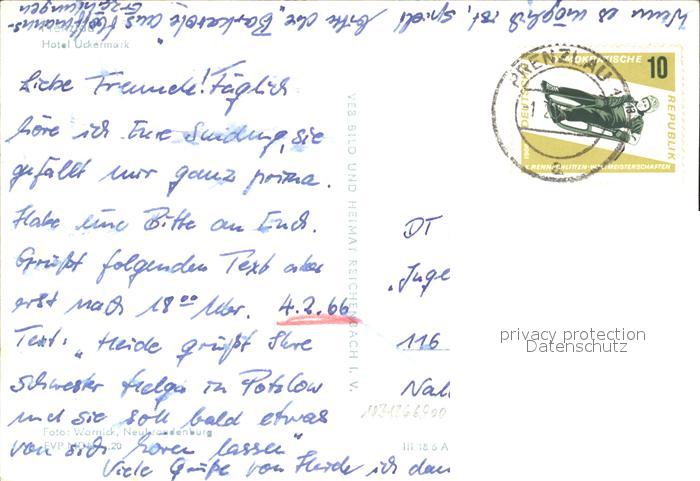 Wenn es möglich ist, spielt bitte die "Barkarole" aus Hoffmanns-
Erzählungen
Hotel Uckermark
Liebe Freunde! Täglich
höre ich Eure Sendung, sie
gefällt mir ganz prima.
Habe eine Bitte an Euch.
Grüßt folgenden Text aber
erst nach 18⁰⁰ Uhr. 4.2.66
Text: "Heide grüßt Ihre
Schwester Helga in Potzlow
und sie soll bald etwas
von sich hören lassen"
Viele Grüße von Heide ich dan
Foto: Warnick, Neubrandenburg
III 18 6 A
VEB BILD UND HEIMAT REICHENBACH I. V.
PRENZLAU
DEUTSCHE DEMOKRATISCHE
REPUBLIK
10
X. RENNSCHLITTEN-WELTMEISTERSCHAFTEN
DT
"Juge
116
Nal
privacy protection
Datenschutz